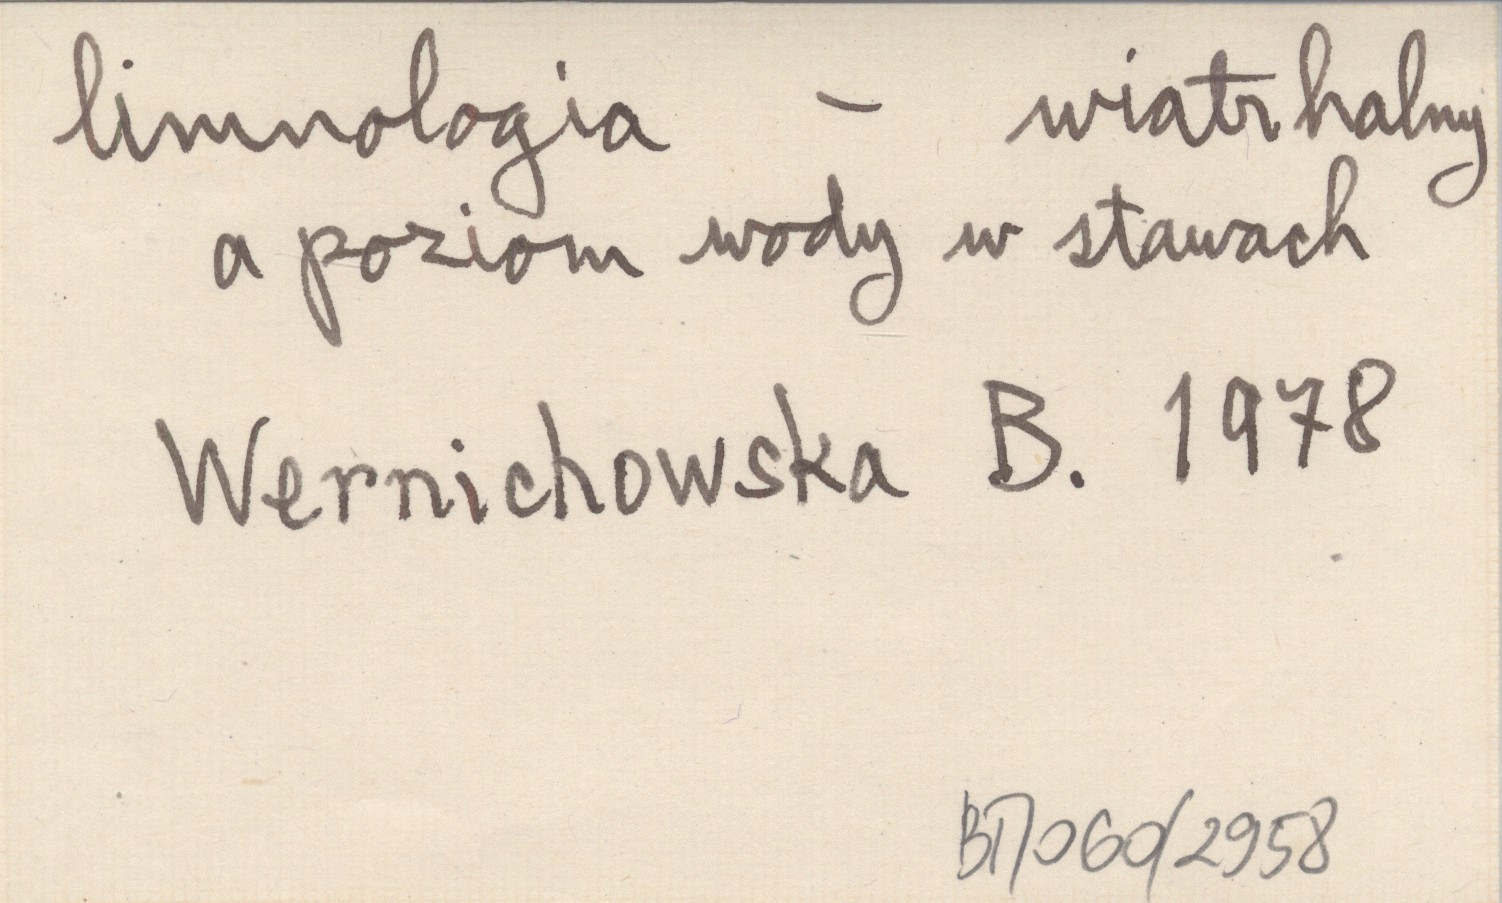 limnologia – wiatr halny
a poziom wody w stawach
Wernichowska B. 1978
BT/060/2958